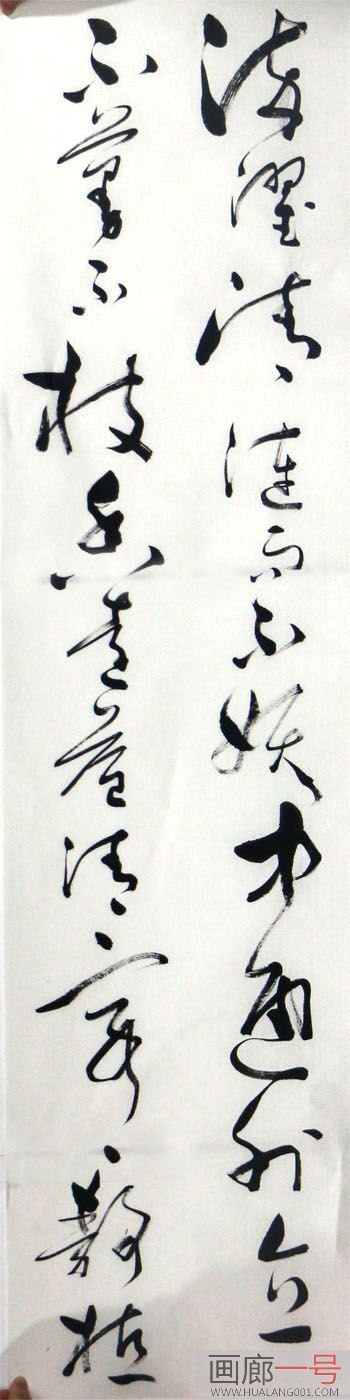 染濯清涟而不妖中通外直
不蔓不枝香远益清亭亭静植
画廊一号
WWW.HUALANG001.COM